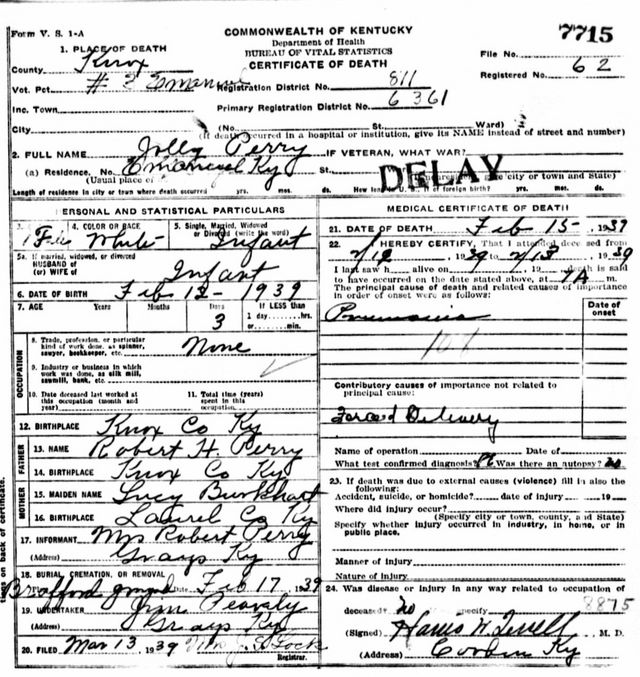 Form V. S. 1-A
COMMONWEALTH OF KENTUCKY
Department of Health
BUREAU OF VITAL STATISTICS
CERTIFICATE OF DEATH
7715
1. PLACE OF DEATH
County Knox
File No.
Registered No. 62
Vot. Pct. # E Emanuel Registration District No. 811
Inc. Town Primary Registration District No. 6361
City (No. St. Ward)
(If death occurred in a hospital or institution, give its NAME instead of street and number)
2. FULL NAME Jolly Perry IF VETERAN, WHAT WAR?
(a) Residence, No. Emanuel Ky St.
(Usual place of city or town and State)
DELAY
Length of residence in city or town where death occurred yrs. mos. ds. How long in U. S., if of foreign birth? yrs. mos. ds.
PERSONAL AND STATISTICAL PARTICULARS
3. 4. COLOR OR RACE 5. Single, Married, Widowed or Divorced (write the word)
White Infant
5a. If married, widowed, or divorced
HUSBAND of
(or) WIFE of Infant
6. DATE OF BIRTH Feb 12-1939
7. AGE Years Months Days If LESS than
3 1 day......hrs.
or......min.
OCCUPATION
8. Trade, profession, or particular kind of work done, as spinner, sawyer, bookkeeper, etc. None
9. Industry or business in which work was done, as silk mill, sawmill, bank, etc.
10. Date deceased last worked at this occupation (month and year)
11. Total time (years) spent in this occupation
12. BIRTHPLACE Knox Co Ky
FATHER
13. NAME Robert H. Perry
14. BIRTHPLACE Knox Co Ky
MOTHER
15. MAIDEN NAME Lucy Burkhart
16. BIRTHPLACE Laurel Co Ky
17. INFORMANT Mrs Robert Perry
(Address) Grays Ky
18. BURIAL, CREMATION, OR REMOVAL
Date Feb 17 1939
19. UNDERTAKER
(Address) Grays Ky
20. FILED Mar 13, 1939
Registrar.
MEDICAL CERTIFICATE OF DEATH
21. DATE OF DEATH Feb 15-, 1939
22. I HEREBY CERTIFY, That I attended deceased from
2/12 1939 2/13, 1939
I last saw h alive on 19 death is said
to have occurred on the date stated above, at 7A m.
The principal cause of death and related causes of importance in order of onset were as follows:
Date of onset
Pneumonia
107
Contributory causes of importance not related to principal cause:
Forced Delivery
Name of operation Date of
What test confirmed diagnosis? Was there an autopsy? no
23. If death was due to external causes (violence) fill in also the following:
Accident, suicide, or homicide? date of injury 19
Where did injury occur?
(Specify city or town, county, and State)
Specify whether injury occurred in industry, in home, or in public place.
Manner of injury
Nature of injury
24. Was disease or injury in any way related to occupation of
deceased? no specify 8875
(Signed) M. D.
(Address) Corbin Ky
tions on back of certificate.